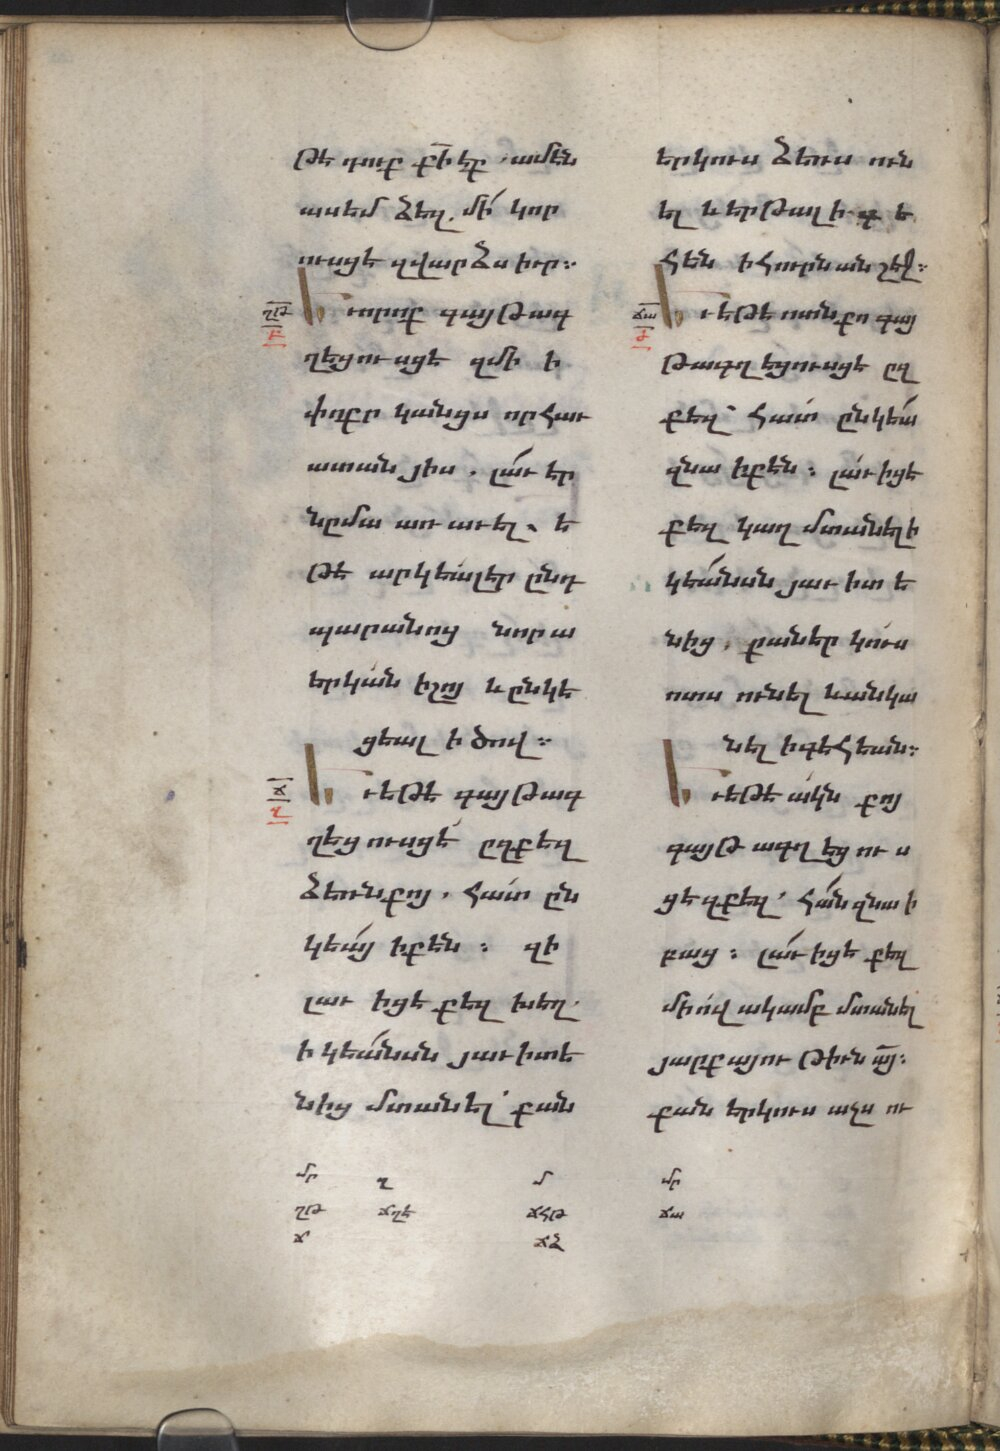 թե դուք քի էք, ամէն
ասեմ ձեզ. մի՛ կոր
ուսցե զվարձս իւր։
ԵՒորոք գայթագ
ղեցուսցե զմի ի
փոքր կանցս որհաւ
ատան յիս. լա՛ւ էր
նըմա առաւել. ե
թե արկեալ էր ընդ
պարանոց նորա
երկան իշոյ և ընկե
ցեալ ի ծով։
ԵՒեթե գայթագ
ղեցուսցե՛ ըզքեզ
ձեռն քոյ. հա՛տ ըն
կեա՛յ իքէն։ զի
լաւ իցե քեզ խեղ.
ի կեա՛նսն յաւիտե
նից մտանել՝ քան
երկուս ձեռս ուն
ել և երթալ ի գե
հեն ի հուրն անշեջ։
ԵՒեթե ոտն քո գայ
թագղեցուսցե ըզ
քեզ՝ հատ ընկեա՛
զնա իքէն։ լաւ իցե
քեզ կաղ մտանել ի
կեա՛նսն յաւիտե
նից. քաներկուս
ոտս ունել և անկա
նել իգեհեան։
ԵՒեթե ակն քոյ
գայթագղեցուս
ցե զքեզ՝ հա՛ն զնա ի
բաց։ լա՛ւ իցե քեզ
միով ակամբ մտանել
յարքայութիւն այ։
քան երկուս աչս ու
ղթ
ճ
ճա
մր ղ մ մր
ղթ ճղե ճհթ ճա
ճ ճձ